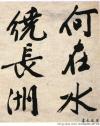 何在水
繞長洲